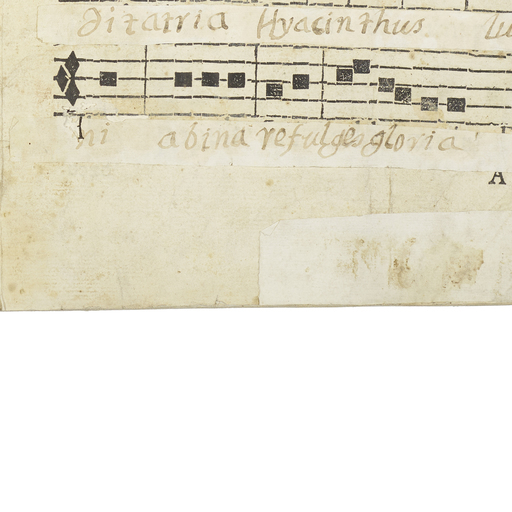 ditatria Hyacinthus Lu
ni abina refulges gloria
A